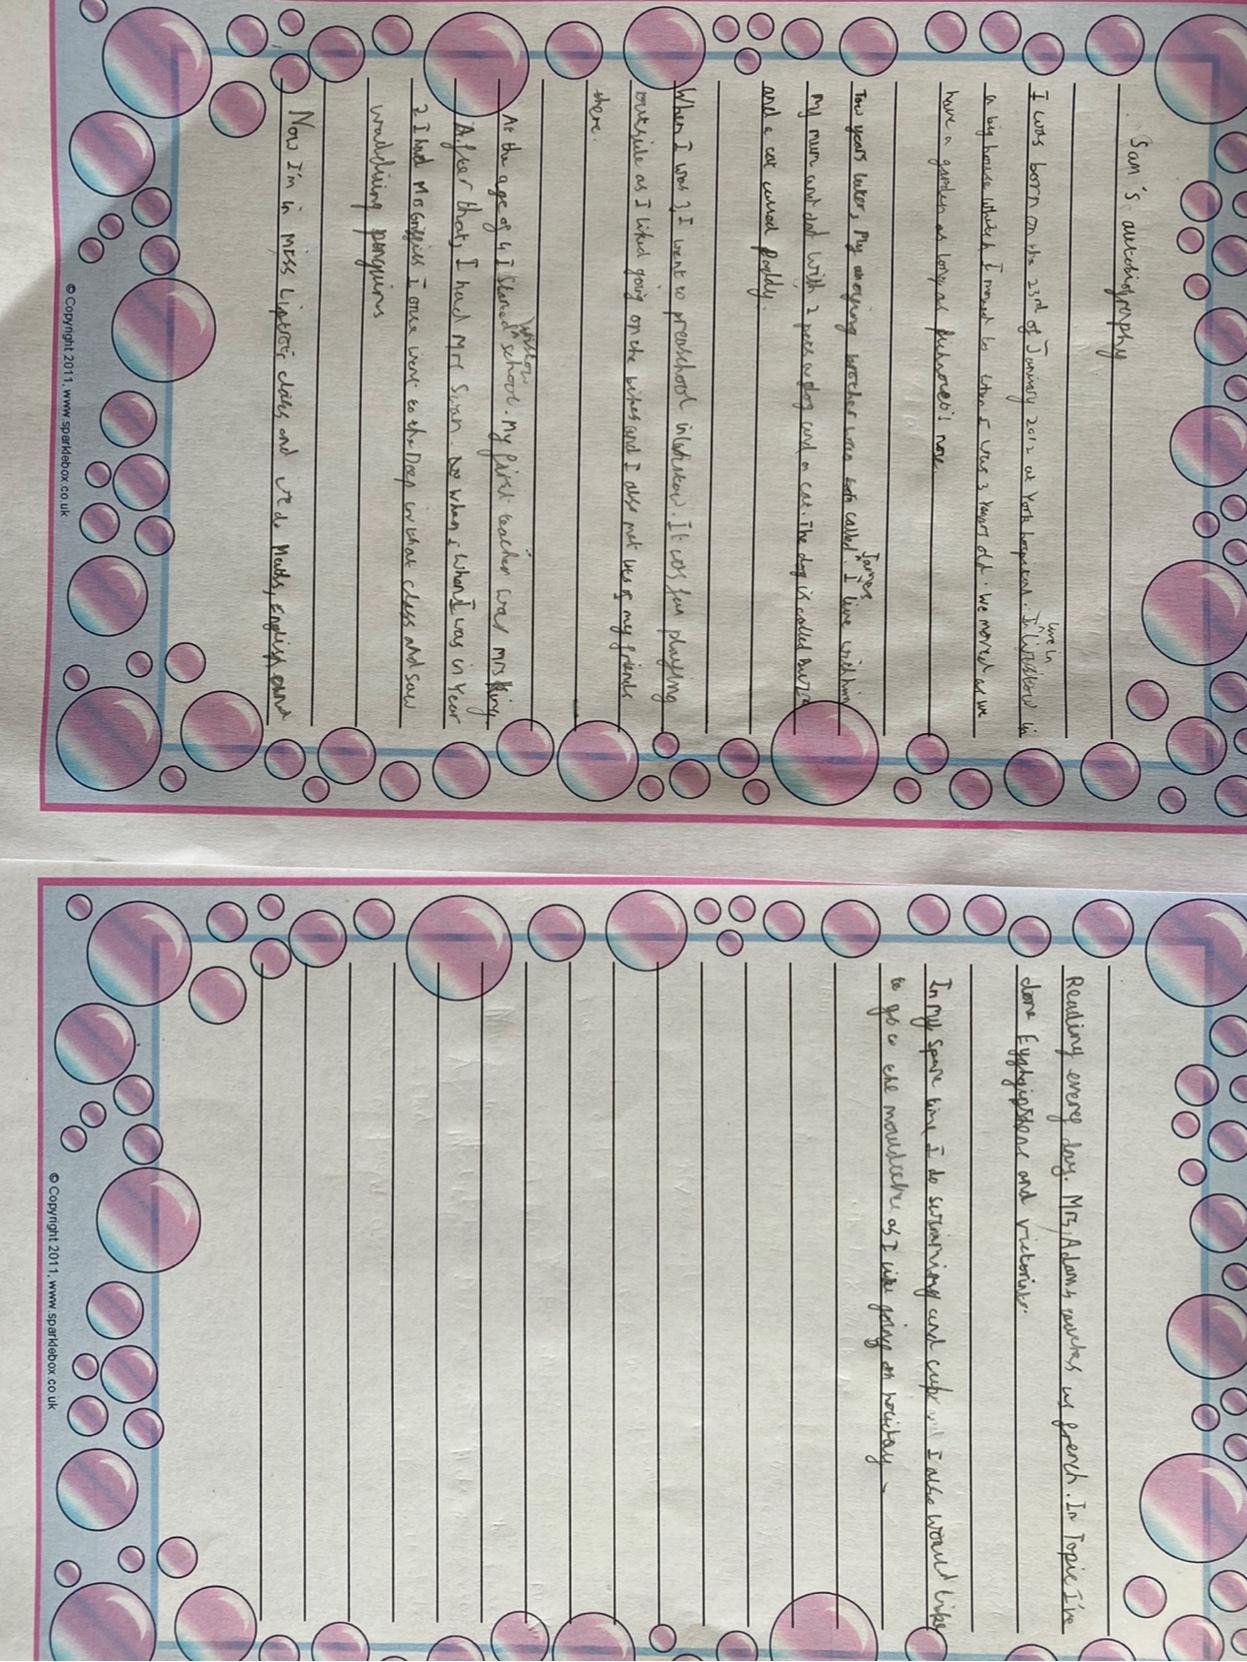 Sam's autobiography
I was born on the 23rd of January 2012 at York hospital. I live in Wistow in
a big house which I moved to when I was 3 years old. We moved as we
have a garden as long as
Two years later, my annoying brother was called James. I live with him
My mum and dad with 2 pets a dog and a cat. The dog is called Buzz
and a cat called Paddy.
When I was 2 I went to preschool in Wistow. It was fun playing
outside as I liked going on the bikes and I also met lots of my friends
there.
At the age of 4 I started Wistow school. My first teacher was Mrs King
After that, I had Mrs Swan. When I was in Year
2 I had Mrs I once went to the Deep in that class and saw
waddling penguins
Now I'm in Miss class and we do Maths, English and
© Copyright 2011, www.sparklebox.co.uk
Reading every day. Mrs Adams teaches us french. In Topic I've
done and
In my spare time I do swimming and I also would like
to go to the as I like going on holiday
© Copyright 2011, www.sparklebox.co.uk